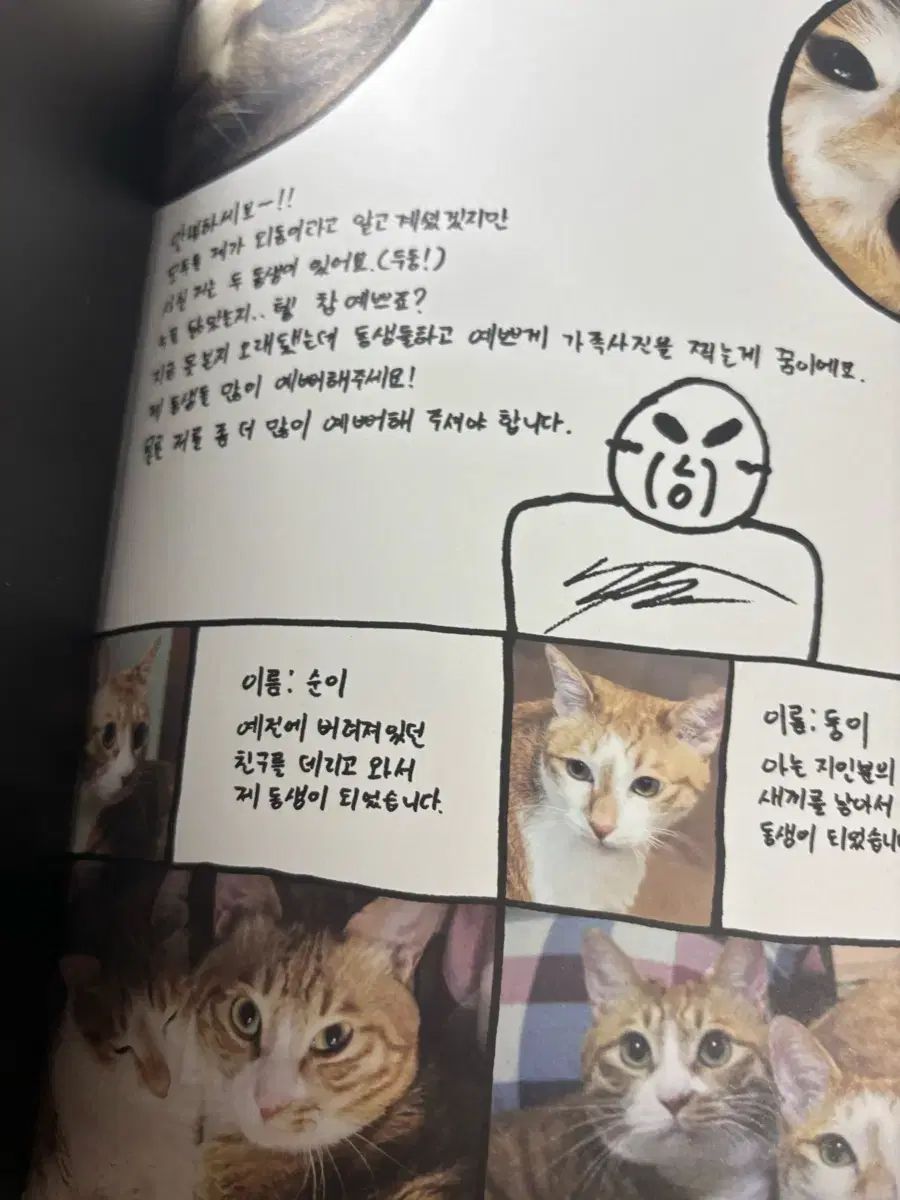 안녕하세요~!!
모두들 제가 외동이라고 알고 계셨겠지만
사실 저는 두 동생이 있어요.(두둥!)
닮았는지.. 털 참 예쁘죠?
지금 못본지 오래됐는데 동생들하고 예쁘게 가족사진을 찍는게 꿈이에요.
제 동생들 많이 예뻐해주세요!
물론 저를 좀 더 많이 예뻐해 주셔야 합니다.
이름: 순이
예전에 버려져있던
친구를 데리고 와서
제 동생이 되었습니다.
이름: 둥이
아는 지인분의
새끼를 낳아서
동생이 되었습니